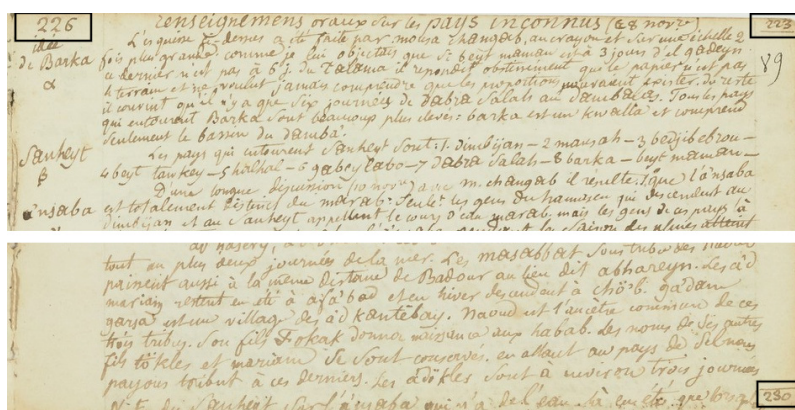 226
renseignemens oraux sur les pays inconnus (28 novre)
223
idée
de Barka
α
L'esquisse ci dessus a été faite par mousa changab, au crayon et sur une échelle 2
fois plus grande comme je lui objectais que si beyt maman est à 3 jours d'el gadeyn
ce dernier n'est pas à 6 j. du Talama il répondit obstinément que le papier n'est pas
le terrain et ne voulut jamais comprendre que les proportions pouvaient exister. du reste
89
il convint qu'il n'y a que six journées de dabra Salah au dambalas. Tous les pays
qui entourent Barka sont beaucoup plus élevés: barka est un kwalla et comprend
seulement le bassin du damba.
Sanheyt
β
Les pays qui entourent Sanheyt sont: 1. dimbijan – 2 mansah – 3 bedjib ebrou –
4 beyt tawkey – 5 halhal – 6 gabey labo – 7 dabra Salah – 8 barka – beyt maman –
D'une longue discussion (10 novre) avec m. changab il résulte: 1. que l'ansaba
a'nsaba
est totalement distinct du marab. Seulet les gens du hamasen qui descendent au
dimbijan et au Sanheyt appellent le cours d'eau marab. mais les gens de ces pays là
saison des pluies atteint
tout au plus deux journées de la mer. Les masabbat sous tribu des
painent aussi à la même distance de Badour au lieu dit abhareyn. Les a'd
mariam restent en été à afa'bad et en hiver descendent à cho'bi. ga'dam
garsa est un village des a'd kantebay. Naoud est l'ancêtre commun de ces
trois tribus. Son fils Fokak donna naissance aux habab. Les noms de ses autres
fils tökles et mariam se sont conservés. en allant au pays de
payons tribut à ces derniers. Les ad ökles sont à environ trois journées
du Sanheyt sur l'a'nsaba qui n'a de l'eau là en été que
230